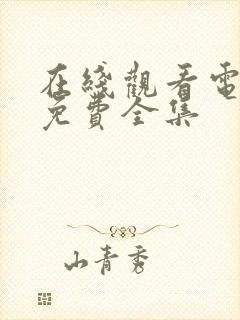 在綫觀看電
免費全集
山青秀